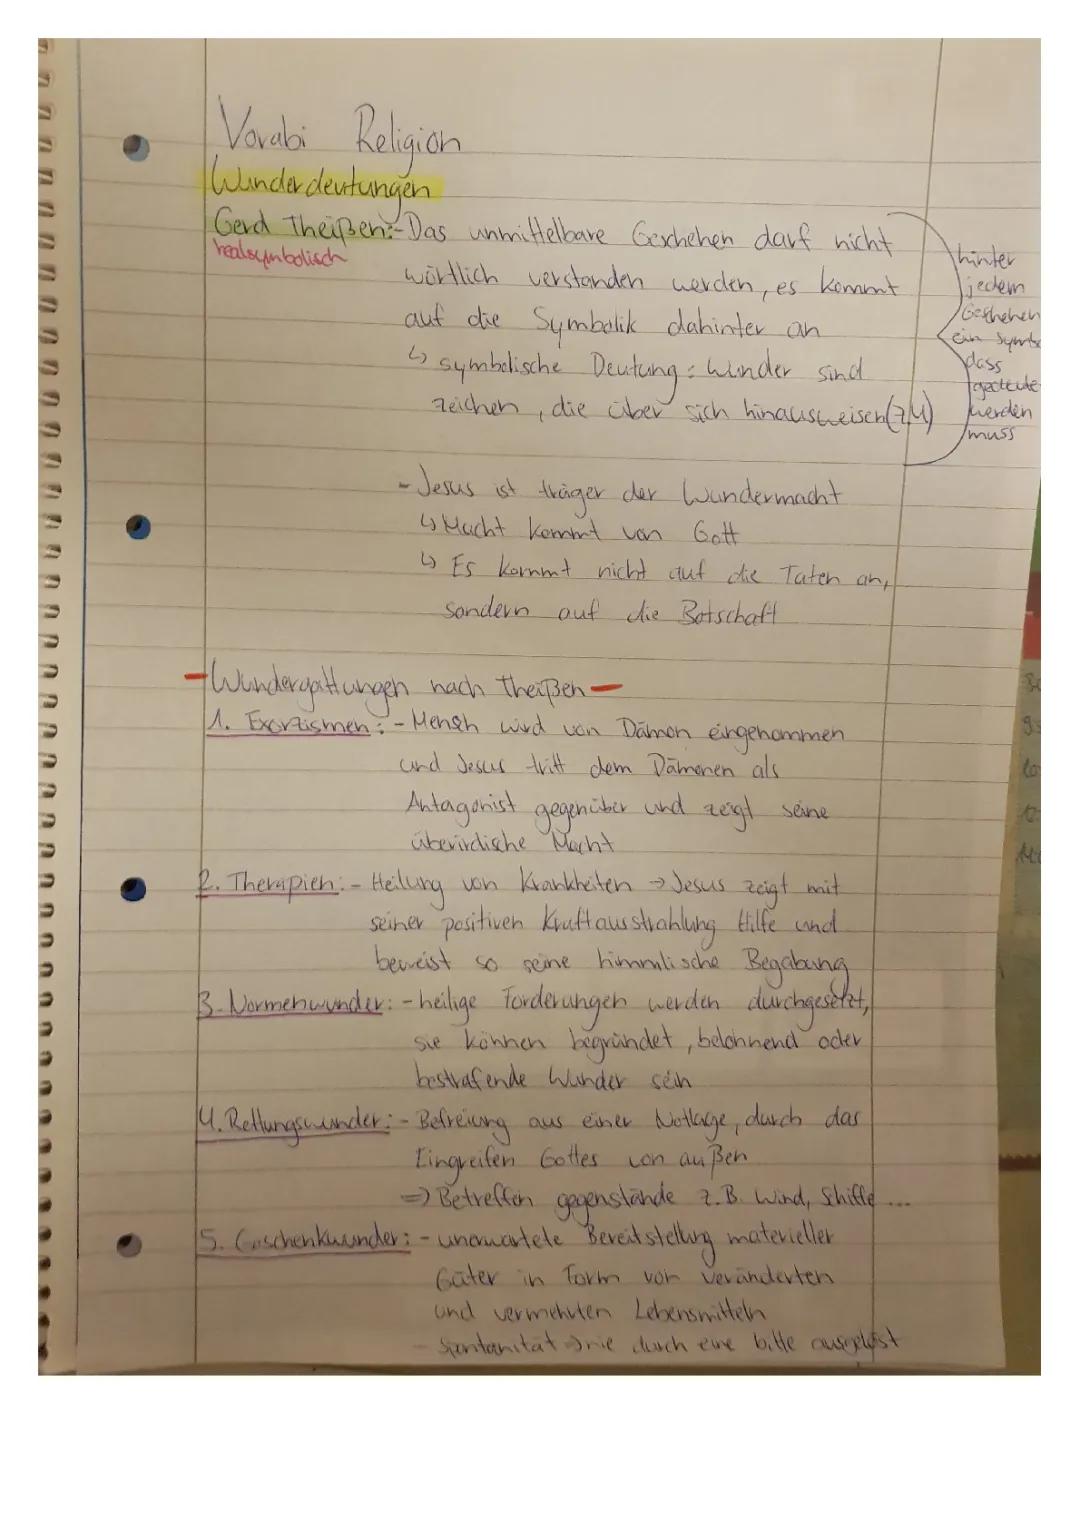 Vorabi Religion
Wunderdeutungen
Gerd Theißen:-Das unmittelbare Geschehen darf nicht
realsymbolisch
wörtlich verstanden werden, es kommt
auf die Symbolik dahinter an
↳ symbolische Deutung: Wunder sind
zeichen, die über sich hinausweisen
hinter
jedem
Geschehen
ein
dass
werden
muss
- Jesus ist träger der Wundermacht
↳ Macht kommt von Gott
↳ Es kommt nicht auf die Taten an,
sondern auf die Botschaft
- Wundergattungen nach Theißen -
1. Exorzismen: - Mensch wird von Dämon eingenommen
und Jesus tritt dem Dämonen als
Antagonist gegenüber und zeigt seine
überirdische Macht
2. Therapien: - Heilung von Krankheiten → Jesus zeigt mit
seiner positiven Kraftausstrahlung Hilfe und
beweist so seine himmlische Begabung
3. Normenwunder: - heilige Forderungen werden durchgesetzt,
sie können begründet, belohnend oder
bestrafende Wunder sein
4. Rettungswunder: - Befreiung aus einer Notlage, durch das
Eingreifen Gottes von außen
⇒ Betreffen gegenstände z.B. Wind, Schiffe ...
5. Geschenkwunder: - unerwartete Bereitstellung materieller
Güter in Form von veränderten
und vermehrten Lebensmitteln
- Spontanität ⇒ nie durch eine bitte ausgelöst